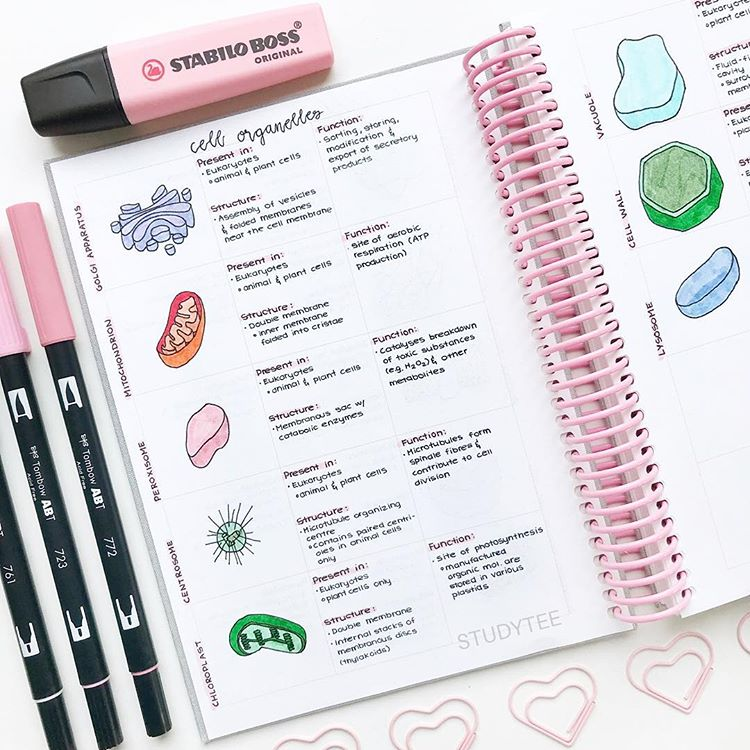 STABILO BOSS
ORIGINAL
cell organelles
GOLGI APPARATUS
Present in:
• Eukaryotes
o animal & plant cells
Structure:
• Assembly of vesicles
& folded membranes
near the cell membrane
Function:
• Sorting, storing,
modification &
export of secretory
products
MITOCHONDRION
Present in:
• Eukaryotes
o animal & plant cells
Structure:
• Double membrane
o inner membrane
folded into cristae
Function:
• Site of aerobic
respiration (ATP
production)
PEROXISOME
Present in:
• Eukaryotes
o animal & plant cells
Structure:
• Membranous sac w/
catabolic enzymes
Function:
• Catalyses breakdown
of toxic substances
(e.g. H2O2) & other
metabolites
CENTROSOME
Present in:
• Eukaryotes
o animal & plant cells
Structure:
• Microtubule organizing
centre
o contains paired centri-
oles in animal cells
only
Function:
• Microtubules form
spindle fibres &
contribute to cell
division
CHLOROPLAST
Present in:
• Eukaryotes
o plant cells only
Structure:
• Double membrane
• Internal stacks of
membranous discs
(thylakoids)
Function:
• Site of photosynthesis
o manufactured
organic mol. are
stored in various
plastids
STUDYTEE
VACUOLE
• Eukaryotes
o plant cells
• Fluid-
cavity
CELL WALL
LYSOSOME
Tombow ABT
Acid Free
761
Tombow ABT
Acid Free
723
Tombow ABT
772